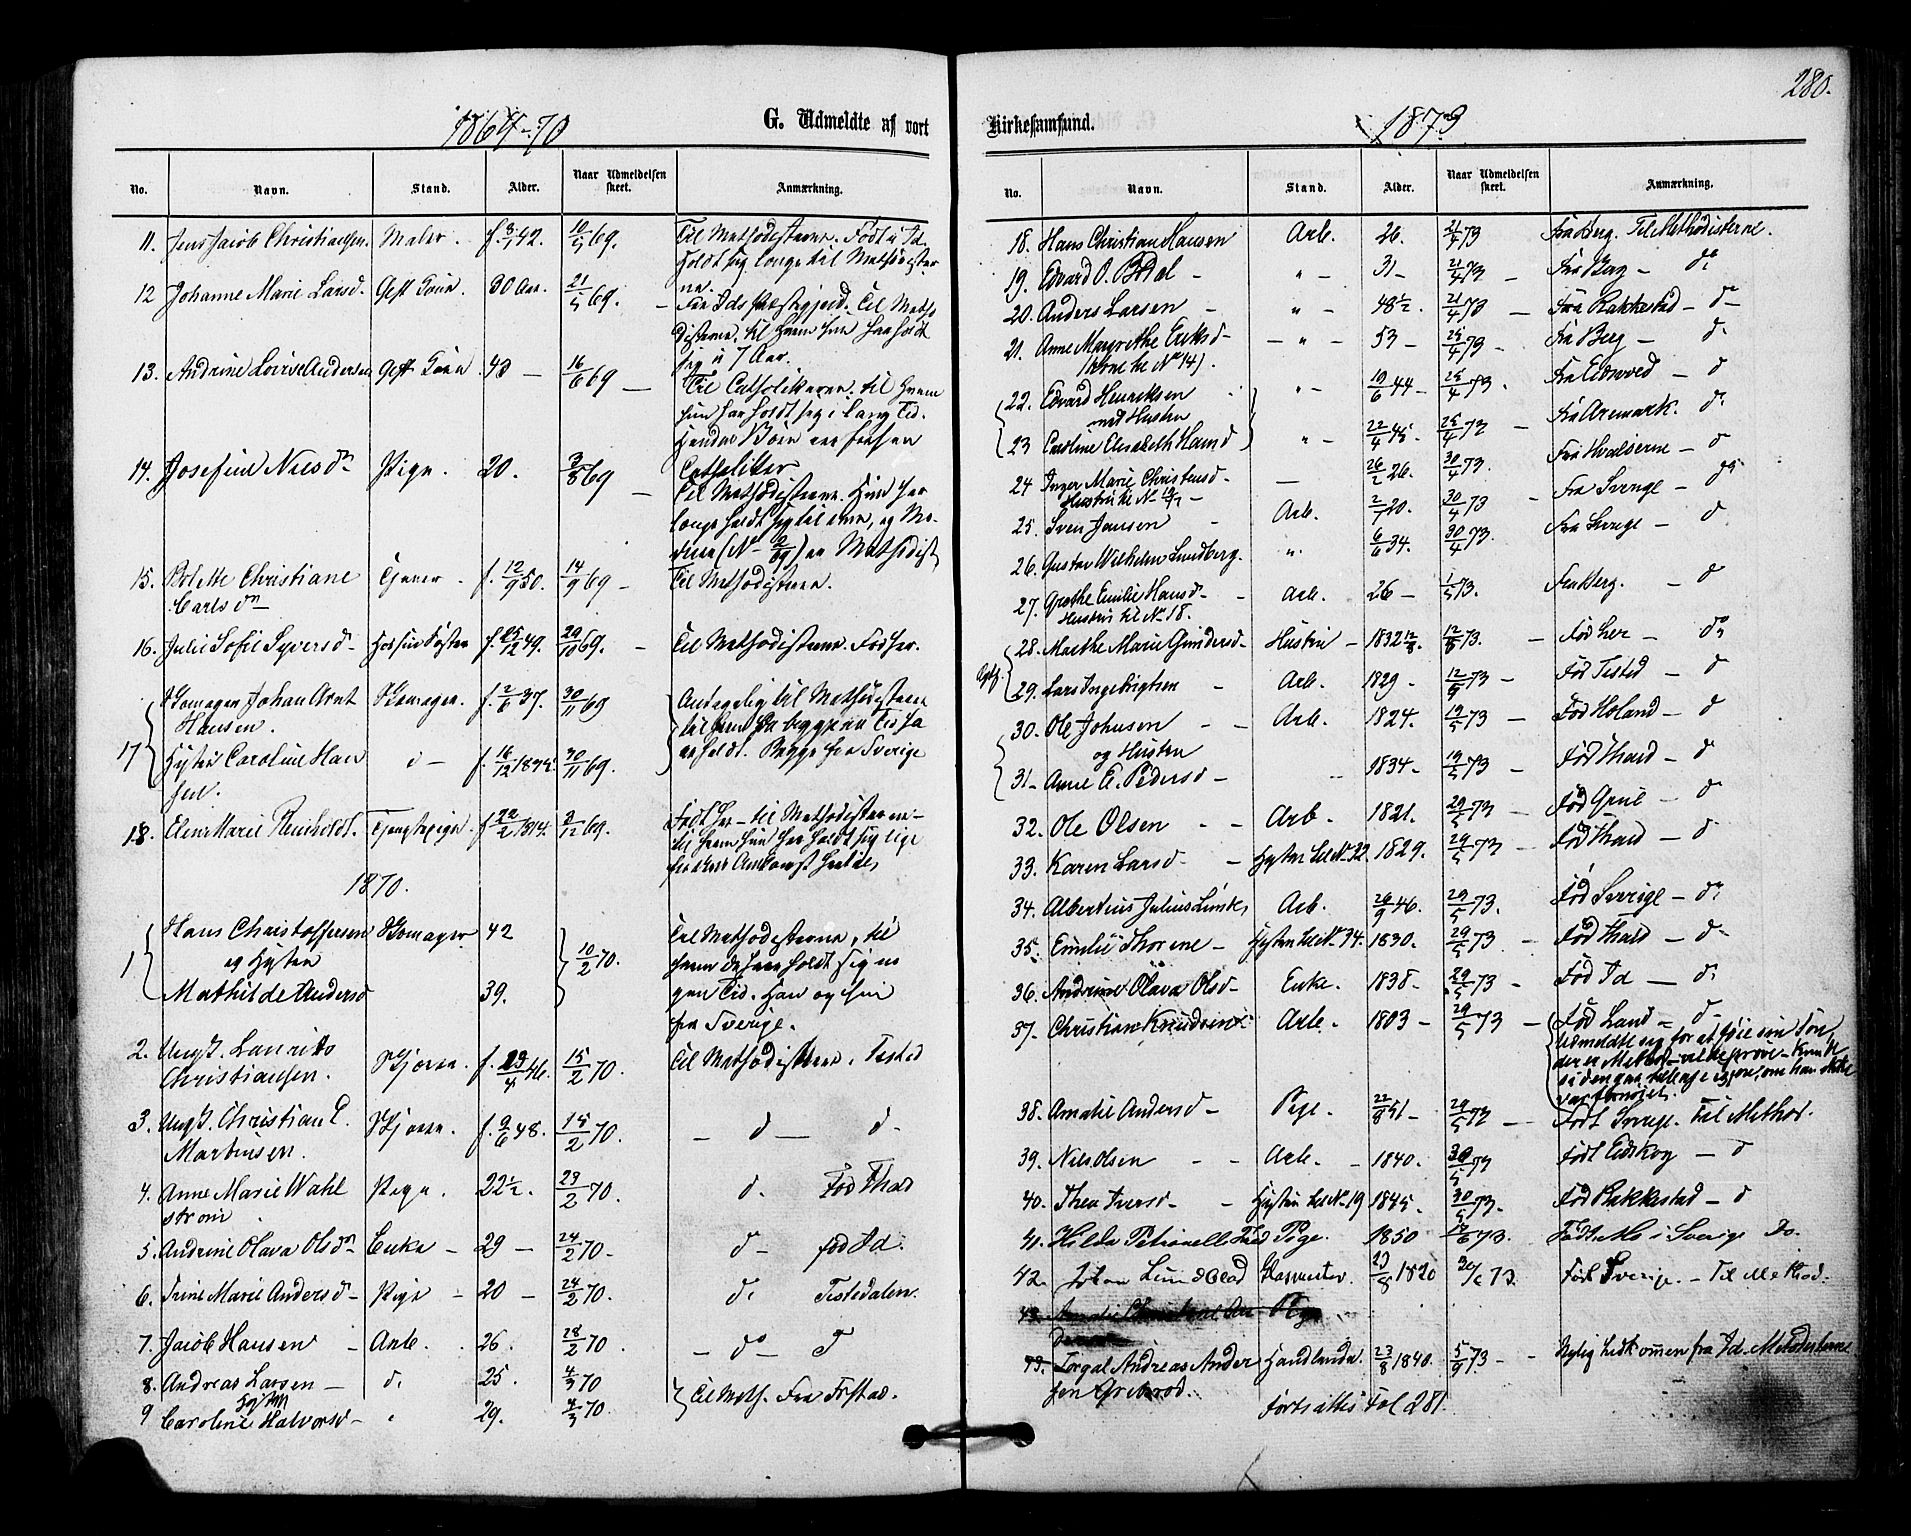 280.
1864-70
G. Udmeldte af vort
No. Navn. Stand. Alder. Naar Udmeldelsen skeet. Anmærkning.
11. Jens Jacob Christiansen. Maler. f. 3/1 42. 10/5 69. Til Methodisterne. Født i Id.
Holdt sig længe til Methodister
ne.
12 Johanne Marie Larsd. Gift Kone. 30 Aar. 21/5 69. — Fra Ids Præstegjeld. Til Metho
disterne, til hvem hun har holdt
sig i 7 Aar.
13. Andrine Lovise Andersen Gift Kone. 43 — 16/6 69 — Til Catholikerne, til hvem
hun har holdt sig i lang Tid.
Hendes Børn ere
Catholiker
14. Josefine Nielsdn Pige. 20. 3/8 69 — Til Methodisterne. Hun har
længe holdt sig til dem, og Mo-
deren (No 2/69) er Methodist
15. Bolette Christiane Tjener. f. 12/9 50. 14/9 69 — Til Methodisterne.
Carlsdn
16. Julie Sofie Syversd. Hos sin f. 25/12 49. 29/10 69. — Til Methodisterne. Fød her.
17 Skomager Johan Arnt Skomager. f. 2/6 37. 30/11 69 Andægelig til Methodisterne
Hansen. til hvem de begge en Tid ha
Hustru Caroline Han d — f. 16/12 1835. 30/11 69. ve holdt. Begge fra Sverige
sen.
18. Eline Marie Reinholdt. Tjenestepige. f. 22/2 1814. 3/12 69. Født her — til Methodisterne —
til hvem hun har holdt sig lige
fra deres Ankomst hertil.
1870.
1 Hans Christoffersen Skomager 42 10/2 70. Til Methodisterne, til
og Hustru hvem de have holdt sig no
Mathilde Andersd 39. gen Tid. Han og hun
fra Sverige.
2. Ungk. Laurits Christiansen. f. 23/4 46. 15/2 70. Til Methodisterne. Tistedl
3. Ungk. Christian E. Martinsen. f. 9/6 48. 15/2 70. — d — d.
4. Anne Marie Wahl Pige. 22½. 23/2 70. d. Fød Thald
strøm
5. Andrine Olava Olsdn Enke — 29 — 24/2 70 — d — fød Id.
6. Trine Marie Andersd — Pige — 20 — 24/2 70. d. Tistedalen.
7. Jacob Hansen — Arb. 26. 28/2 70. — do —
8. Andreas Larsen — d. 25. 4/3 70 Til Meth. Fra
Hustru
9 Caroline Halvorsd — 29. 4/3 70.
Kirkesamfund.
1873
No. Navn. Stand. Alder. Naar Udmeldelsen skeet. Anmærkning.
18. Hans Christian Hansen Arb. 26. 21/4 73 Fra Berg. Til Methodisterne.
19. Edvard O. Bdal — " — 31 — 21/4 73 — Fra Berg — do
20. Anders Larsen — " — 48½. 21/4 73 — Fra Rakkestad — d —
21. Anne Margrethe Eriksd — — " — 53 — 25/4 73 — Fra Berg — d.
(Kone til No 14).
22. Edvard Henriksen " — 19/6 44 — 25/4 73. Fra Eidsvold — d
med Hustru
23 Caroline Elisabeth Hansd " — 22/4 45. 25/4 73 — Fra Aremark. d.
24 Inger Marie Christensd — — 26/2 26. 30/4 73. Fra Hvaløerne — d
Hustru til No
25. Sven Jansen — Arb. 2/7 20. 30/4 73 — Fra Sverige — do
26. Gustav Wilhelm Lundberg. ". 6/6 34. 30/4 73. Fra Sverige — d
27. Grethe Emilie Hansd — — Arb. 26 — 1/5 73. Fra Berg. — d
Hustru til No 18.
28. Marthe Marie Gundersd — Hustru — 1832 12/8. 12/5 73. — Fød her — do
29. Lars Ingebrigtsen — Arb. 1829 — 12/5 73 — Fød Tisted — d
30. Ole Johnsen — — Arb. 1824. 19/5 73 — Fød Høland — d
og Hustru
31 — Anne E. Pedersd — 1834 — 19/5 73 — Fød Thald — d
32. Ole Olsen — — Arb. 1821. 29/5 73 — Fød Grue — d
33. Karen Larsd — — Hustru til No 32. 1829. 29/5 73 — Fød Thald — d
34. Albertius Julius Linke Arb. 26/9 46. 29/5 73. Fød Sverige — do
35. Emilie Thorine — Hustru til No 34. 1830. 29/5 73 — Fød Thald — d —
36. Andrine Olava Olsd — Enke. 1838 — 29/5 73 — Fød Id — d.
37. Christian Knudsen Arb. 1803 — 29/5 73 — Fød Land — d —
Udmeldte sig for at føie sin Søn,
der er Method — vilde prøve — Kunde
siden gaa tilbage igjen, om han ikke
var fornøiet.
38. Amalie Andersd — Pige. 22/8 51 — 29/5 73 — Født Sverige. Til Method.
39. Nils Olsen — — Arb. — 1840. 30/5 73 Født Eidskog — d
40. Thea Iversd — — Hustru til No 19 1845. 30/5 73. Fød Rakkestad — d
41. Hilda Petronelle Pige. 1850 12/6 73. Født i Sverige Do.
42. Johan Lindblad 23/5 1820 73. Født Sverige. — Til Method.
43. Amalie Pige
43. Torgal Andreas Ander Handlende. 23/8 1840. 5/9 73 — — Nylig hidkommen fra Id. Methodisterne
sen Grebrød.
Fortsættes Fol 281.